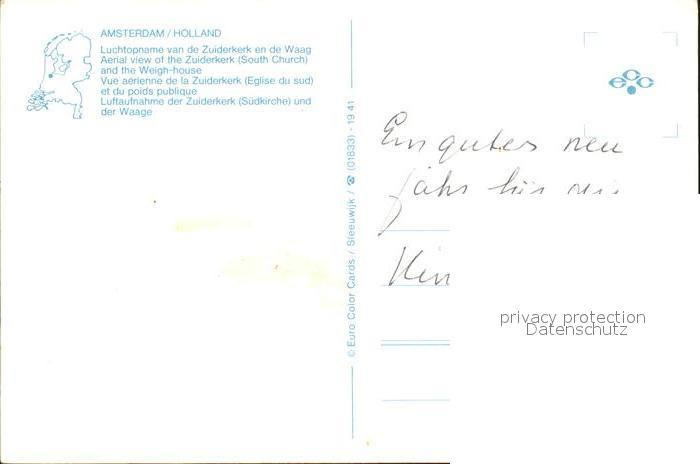 AMSTERDAM / HOLLAND
Luchtopname van de Zuiderkerk en de Waag
Aerial view of the Zuiderkerk (South Church)
and the Weigh-house
Vue aérienne de la Zuiderkerk (Eglise du sud)
et du poids publique
Luftaufnahme der Zuiderkerk (Südkirche) und
der Waage
© Euro Color Cards / Sleeuwijk / ☎ (01833) - 19 41
ecc
Ein gutes neu
jahr
privacy protection
Datenschutz